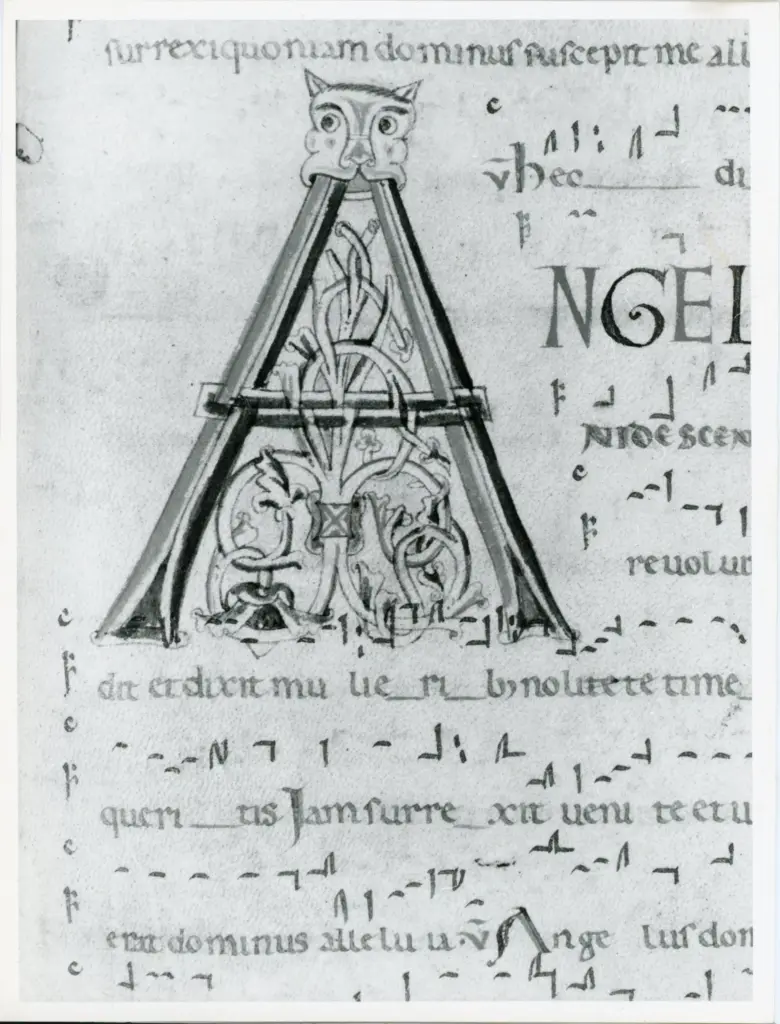 surrexi quoniam dominus suscepit me all
v̄ hec di
ANGEL
NIDESCEN
reuolui
dit et dixit mu lie_ri_b; nolite te time_
queri_tis Jam surre_xit ueni te et u
erat dominus allelu ia. v̄ Ange lus dom